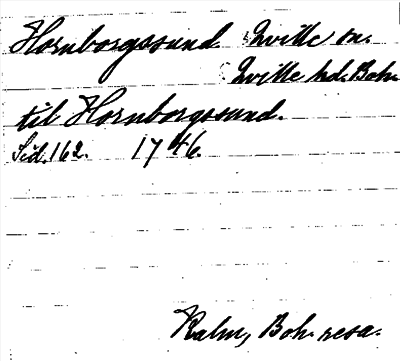 Hornborgssund Qville sn.
Qville hd. Boh.
til Hornborgssund.
Sid. 162. 1746.
Kalm, Boh. resa.